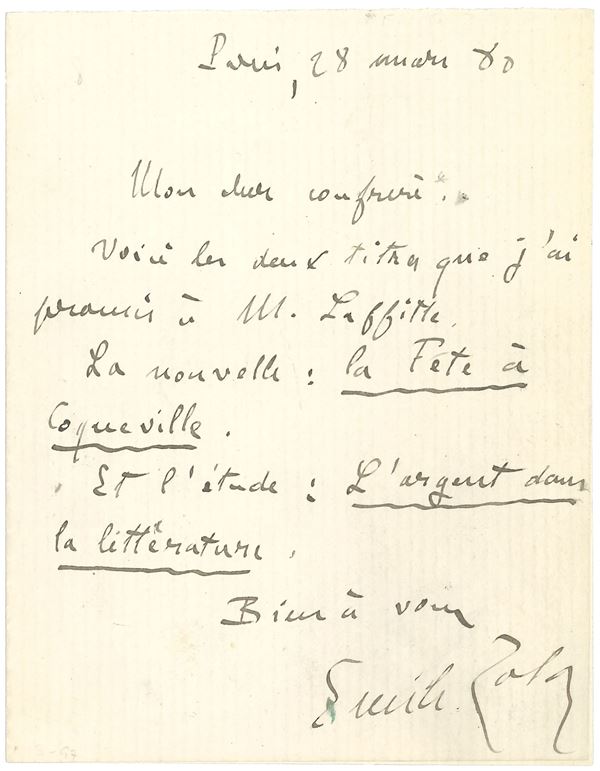 Paris, 28 mars 80
Mon cher confrère.
Voici les deux titres que j'ai
promis à M. Laffitte.
La nouvelle : la Fête à
Coqueville.
Et l'étude : L'argent dans
la littérature.
Bien à vous
Emile Zola